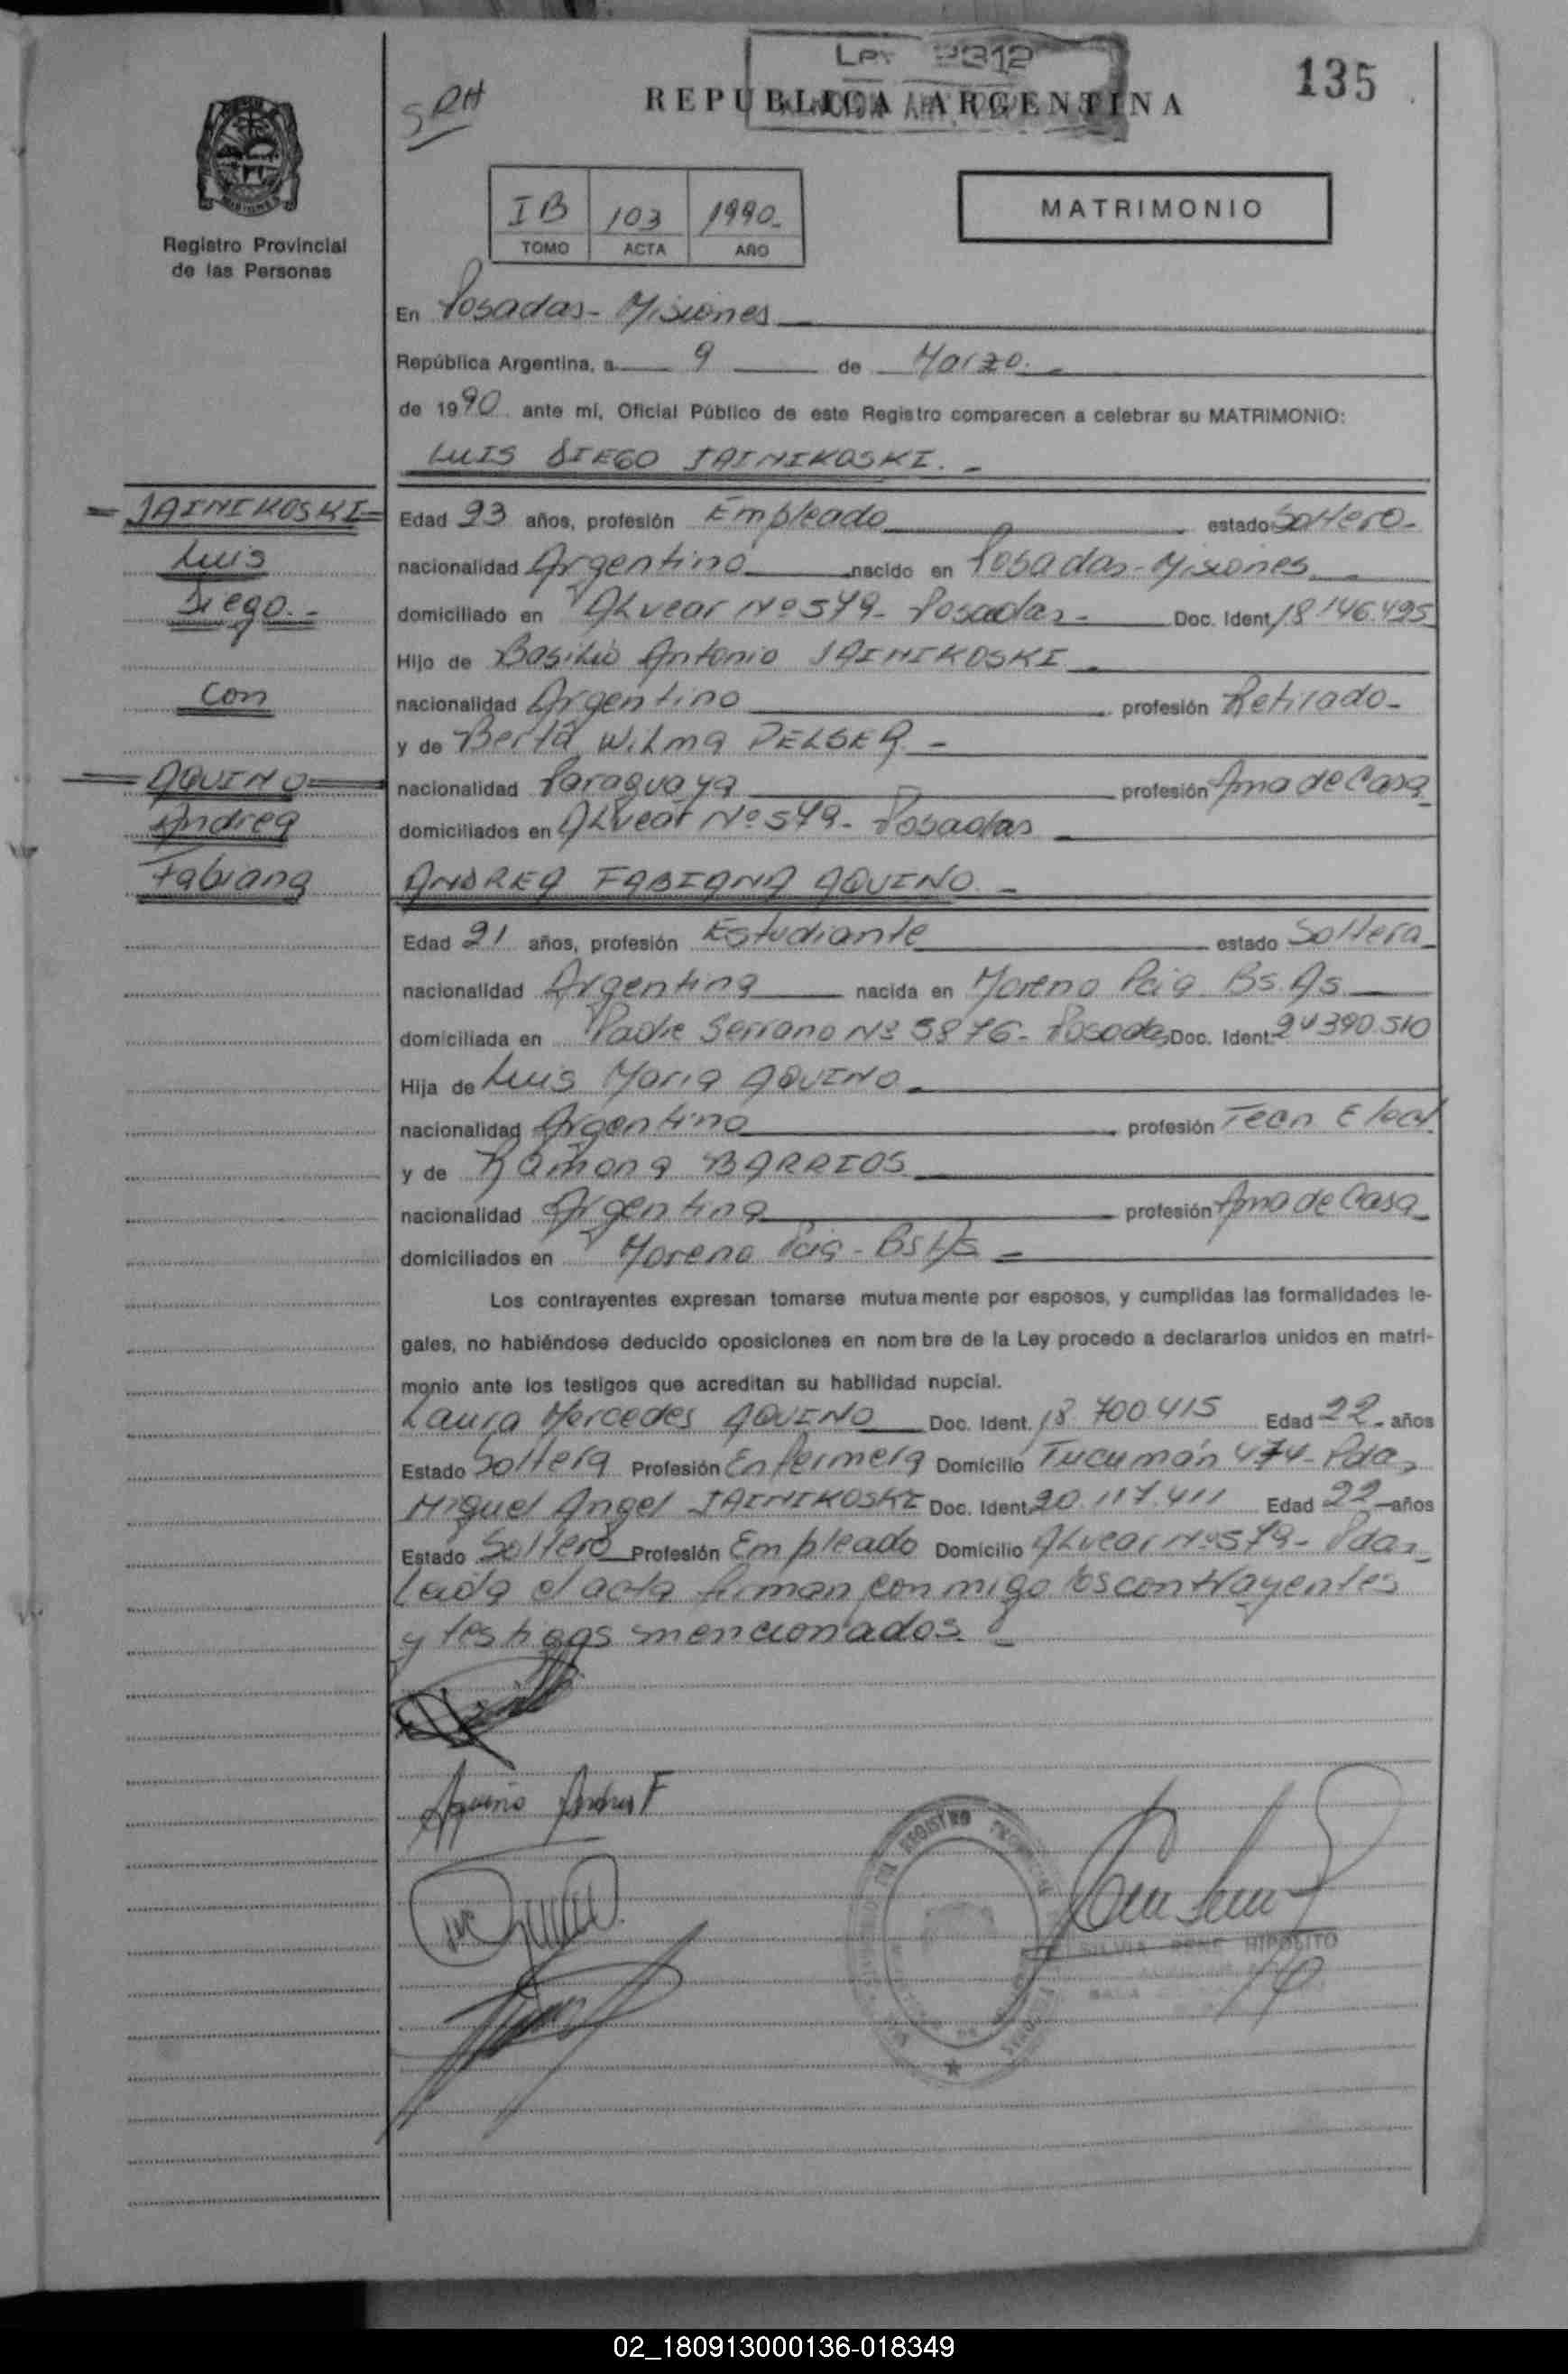 Ley 2312
135
SRH
REPUBLICA ARGENTINA
IB 103 1990.-
TOMO ACTA AÑO
MATRIMONIO
Registro Provincial
de las Personas
En Posadas - Misiones
República Argentina, a 9 de Marzo.-
de 1990 ante mí, Oficial Público de este Registro comparecen a celebrar su MATRIMONIO:
LUIS DIEGO JAINIKOSKI.-
JAINIKOSKI
Luis
Diego.-
con
AQUINO
Andrea
Fabiana
Edad 23 años, profesión Empleado estado Soltero.-
nacionalidad Argentino nacido en Posadas - Misiones
domiciliado en Alvear Nº 579 - Posadas - Doc. Ident. 18.146.495
Hijo de Basilio Antonio JAINIKOSKI
nacionalidad Argentino profesión Retirado -
y de Berta Wilma PELSER -
nacionalidad Paraguaya profesión Ama de Casa
domiciliados en Alvear Nº 579 - Posadas
ANDREA FABIANA AQUINO -
Edad 21 años, profesión Estudiante estado Soltera
nacionalidad Argentina nacida en Moreno Pcia Bs. As
domiciliada en Padre Serrano Nº 3876 - Posadas Doc. Ident. 24390.510
Hija de Luis Maria AQUINO
nacionalidad Argentino profesión Tecn Elect
y de Ramona BARRIOS
nacionalidad Argentina profesión Ama de Casa
domiciliados en Moreno Pcia - Bs As -
Los contrayentes expresan tomarse mutuamente por esposos, y cumplidas las formalidades le-
gales, no habiéndose deducido oposiciones en nombre de la Ley procedo a declararlos unidos en matri-
monio ante los testigos que acreditan su habilidad nupcial.
Laura Mercedes AQUINO Doc. Ident. 18.700.415 Edad 22 años
Estado Soltera Profesión Enfermera Domicilio Tucumán 474 - Pdas
Miguel Angel JAINIKOSKI Doc. Ident. 20.117.411 Edad 22 años
Estado Soltero Profesión Empleado Domicilio Alvear Nº 579 - Pdas
Leida el acta firman conmigo los contrayentes
y testigos mencionados. -
Aquino Andrea F
REGISTRO
SILVIA RENE HIPOSITO
02_180913000136-018349